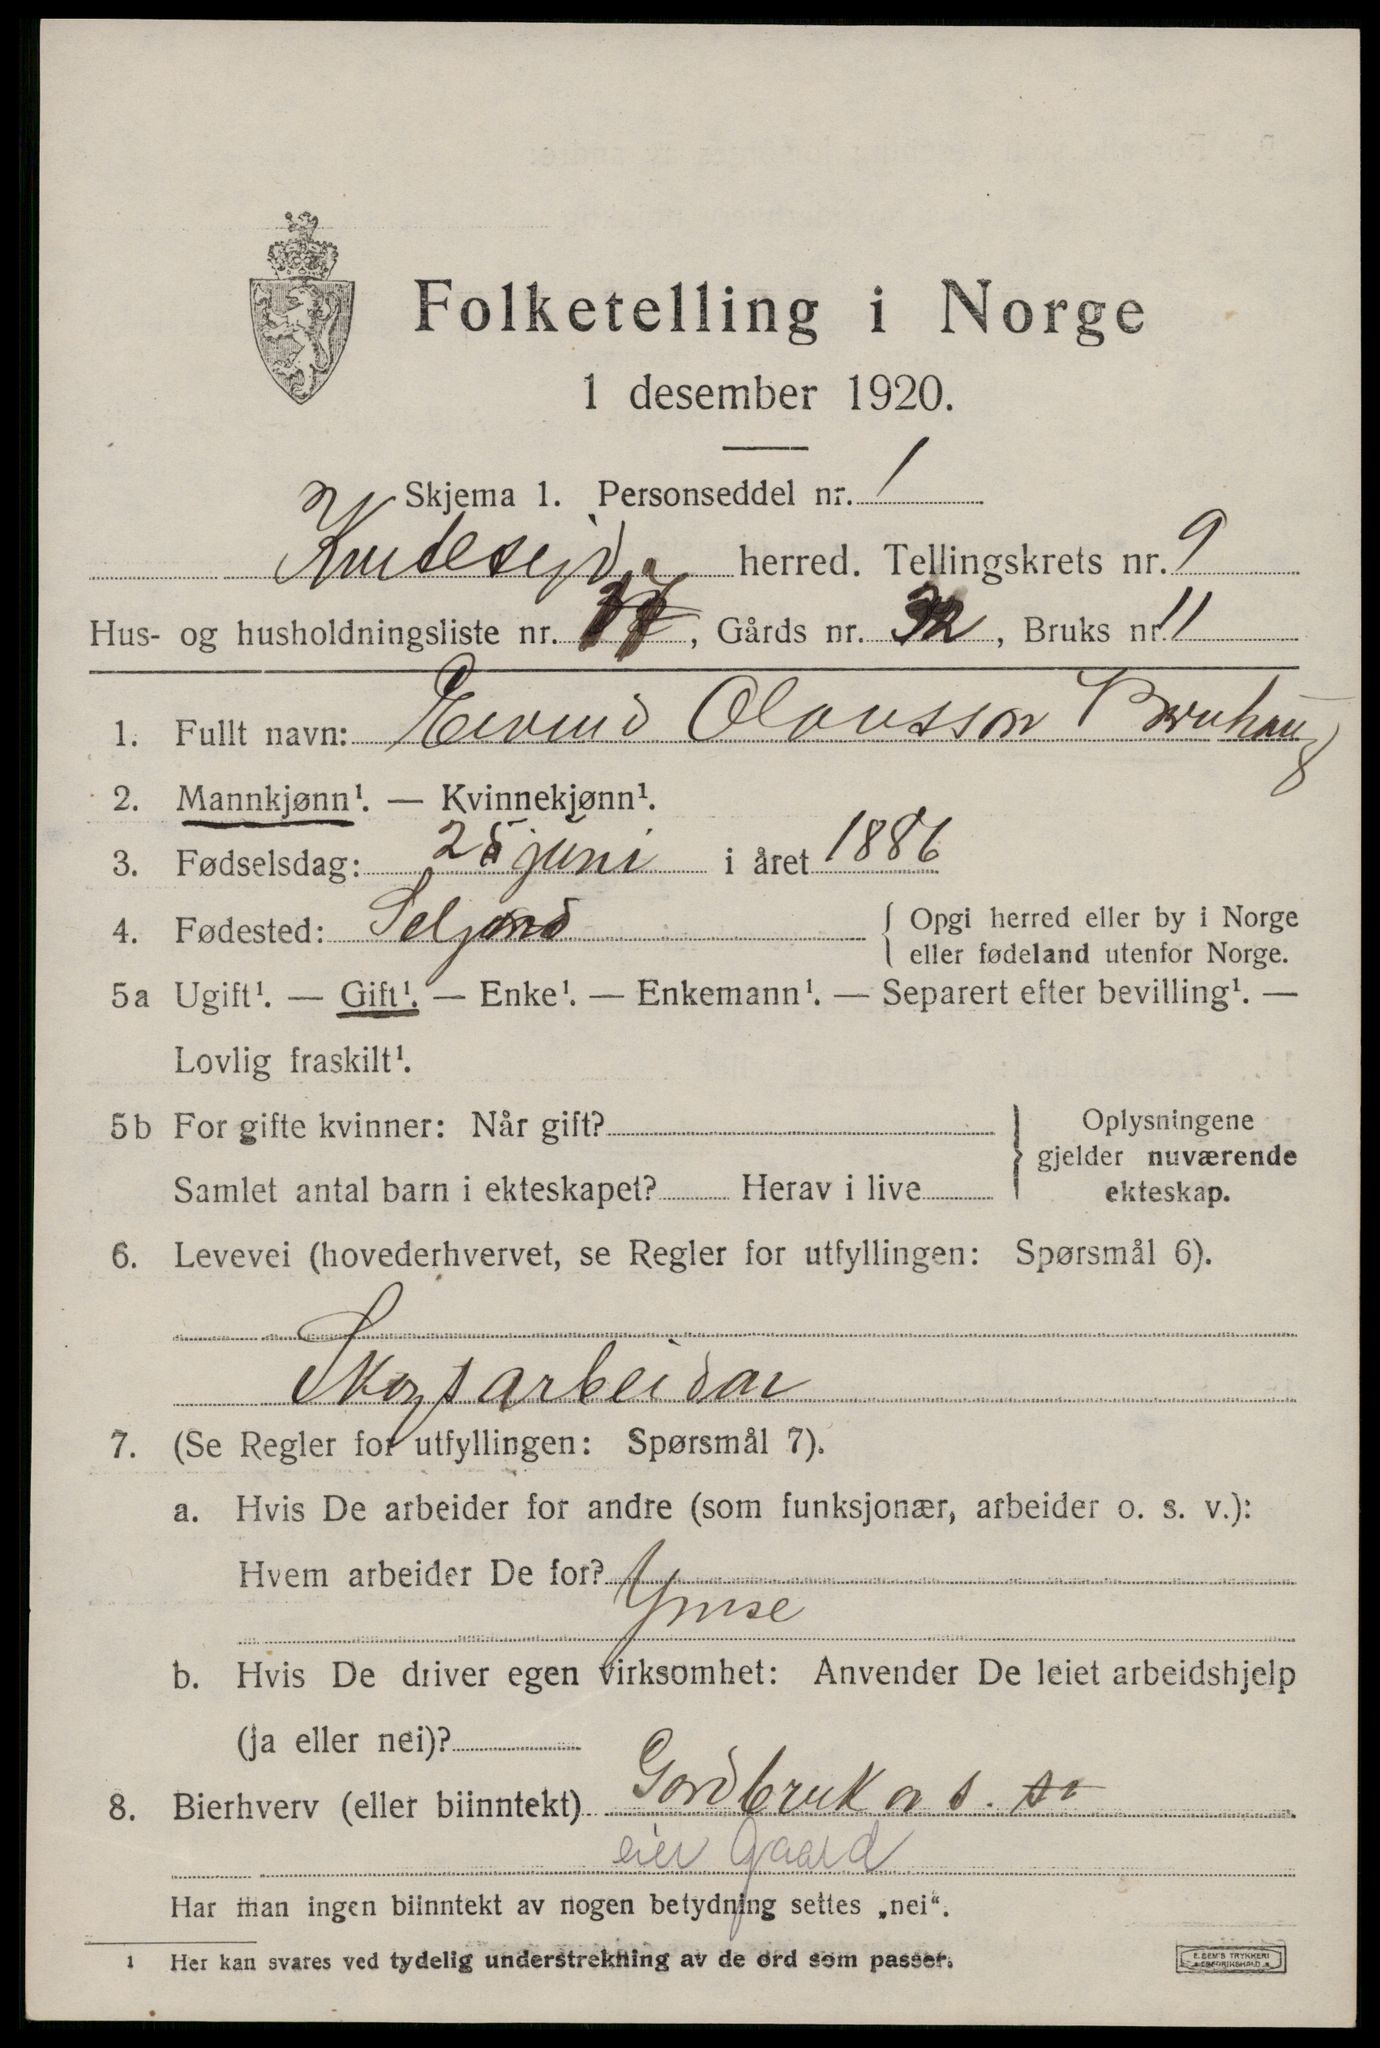 Folketelling i Norge
1 desember 1920.
Skjema 1. Personseddel nr. 1
Kviteseid herred. Tellingskrets nr. 9
Hus- og husholdningsliste nr. 37, Gårds nr. 32, Bruks nr. 11
1. Fullt navn: Eivind Olavsson Bruhaug
2. Mannkjønn¹. — Kvinnekjønn¹.
3. Fødselsdag: 25 juni i året 1886
4. Fødested: Seljord { Opgi herred eller by i Norge
eller fødeland utenfor Norge.
5a Ugift¹. — Gift¹. — Enke¹. — Enkemann¹. — Separert efter bevilling¹. —
Lovlig fraskilt¹.
5b For gifte kvinner: Når gift? } Oplysningene
gjelder nuværende
Samlet antal barn i ekteskapet? Herav i live ekteskap.
6. Levevei (hovederhvervet, se Regler for utfyllingen: Spørsmål 6).
Skogsarbeidar
7. (Se Regler for utfyllingen: Spørsmål 7).
a. Hvis De arbeider for andre (som funksjonær, arbeider o. s. v.):
Hvem arbeider De for?
Ymse
b. Hvis De driver egen virksomhet: Anvender De leiet arbeidshjelp
(ja eller nei)?
8. Bierhverv (eller biinntekt) Gardbrukar s.
eier Gaard
Har man ingen biinntekt av nogen betydning settes „nei“.
1 Her kan svares ved tydelig understrekning av de ord som passer.
E. SEM'S TRYKKERI
FREDRIKSHALD